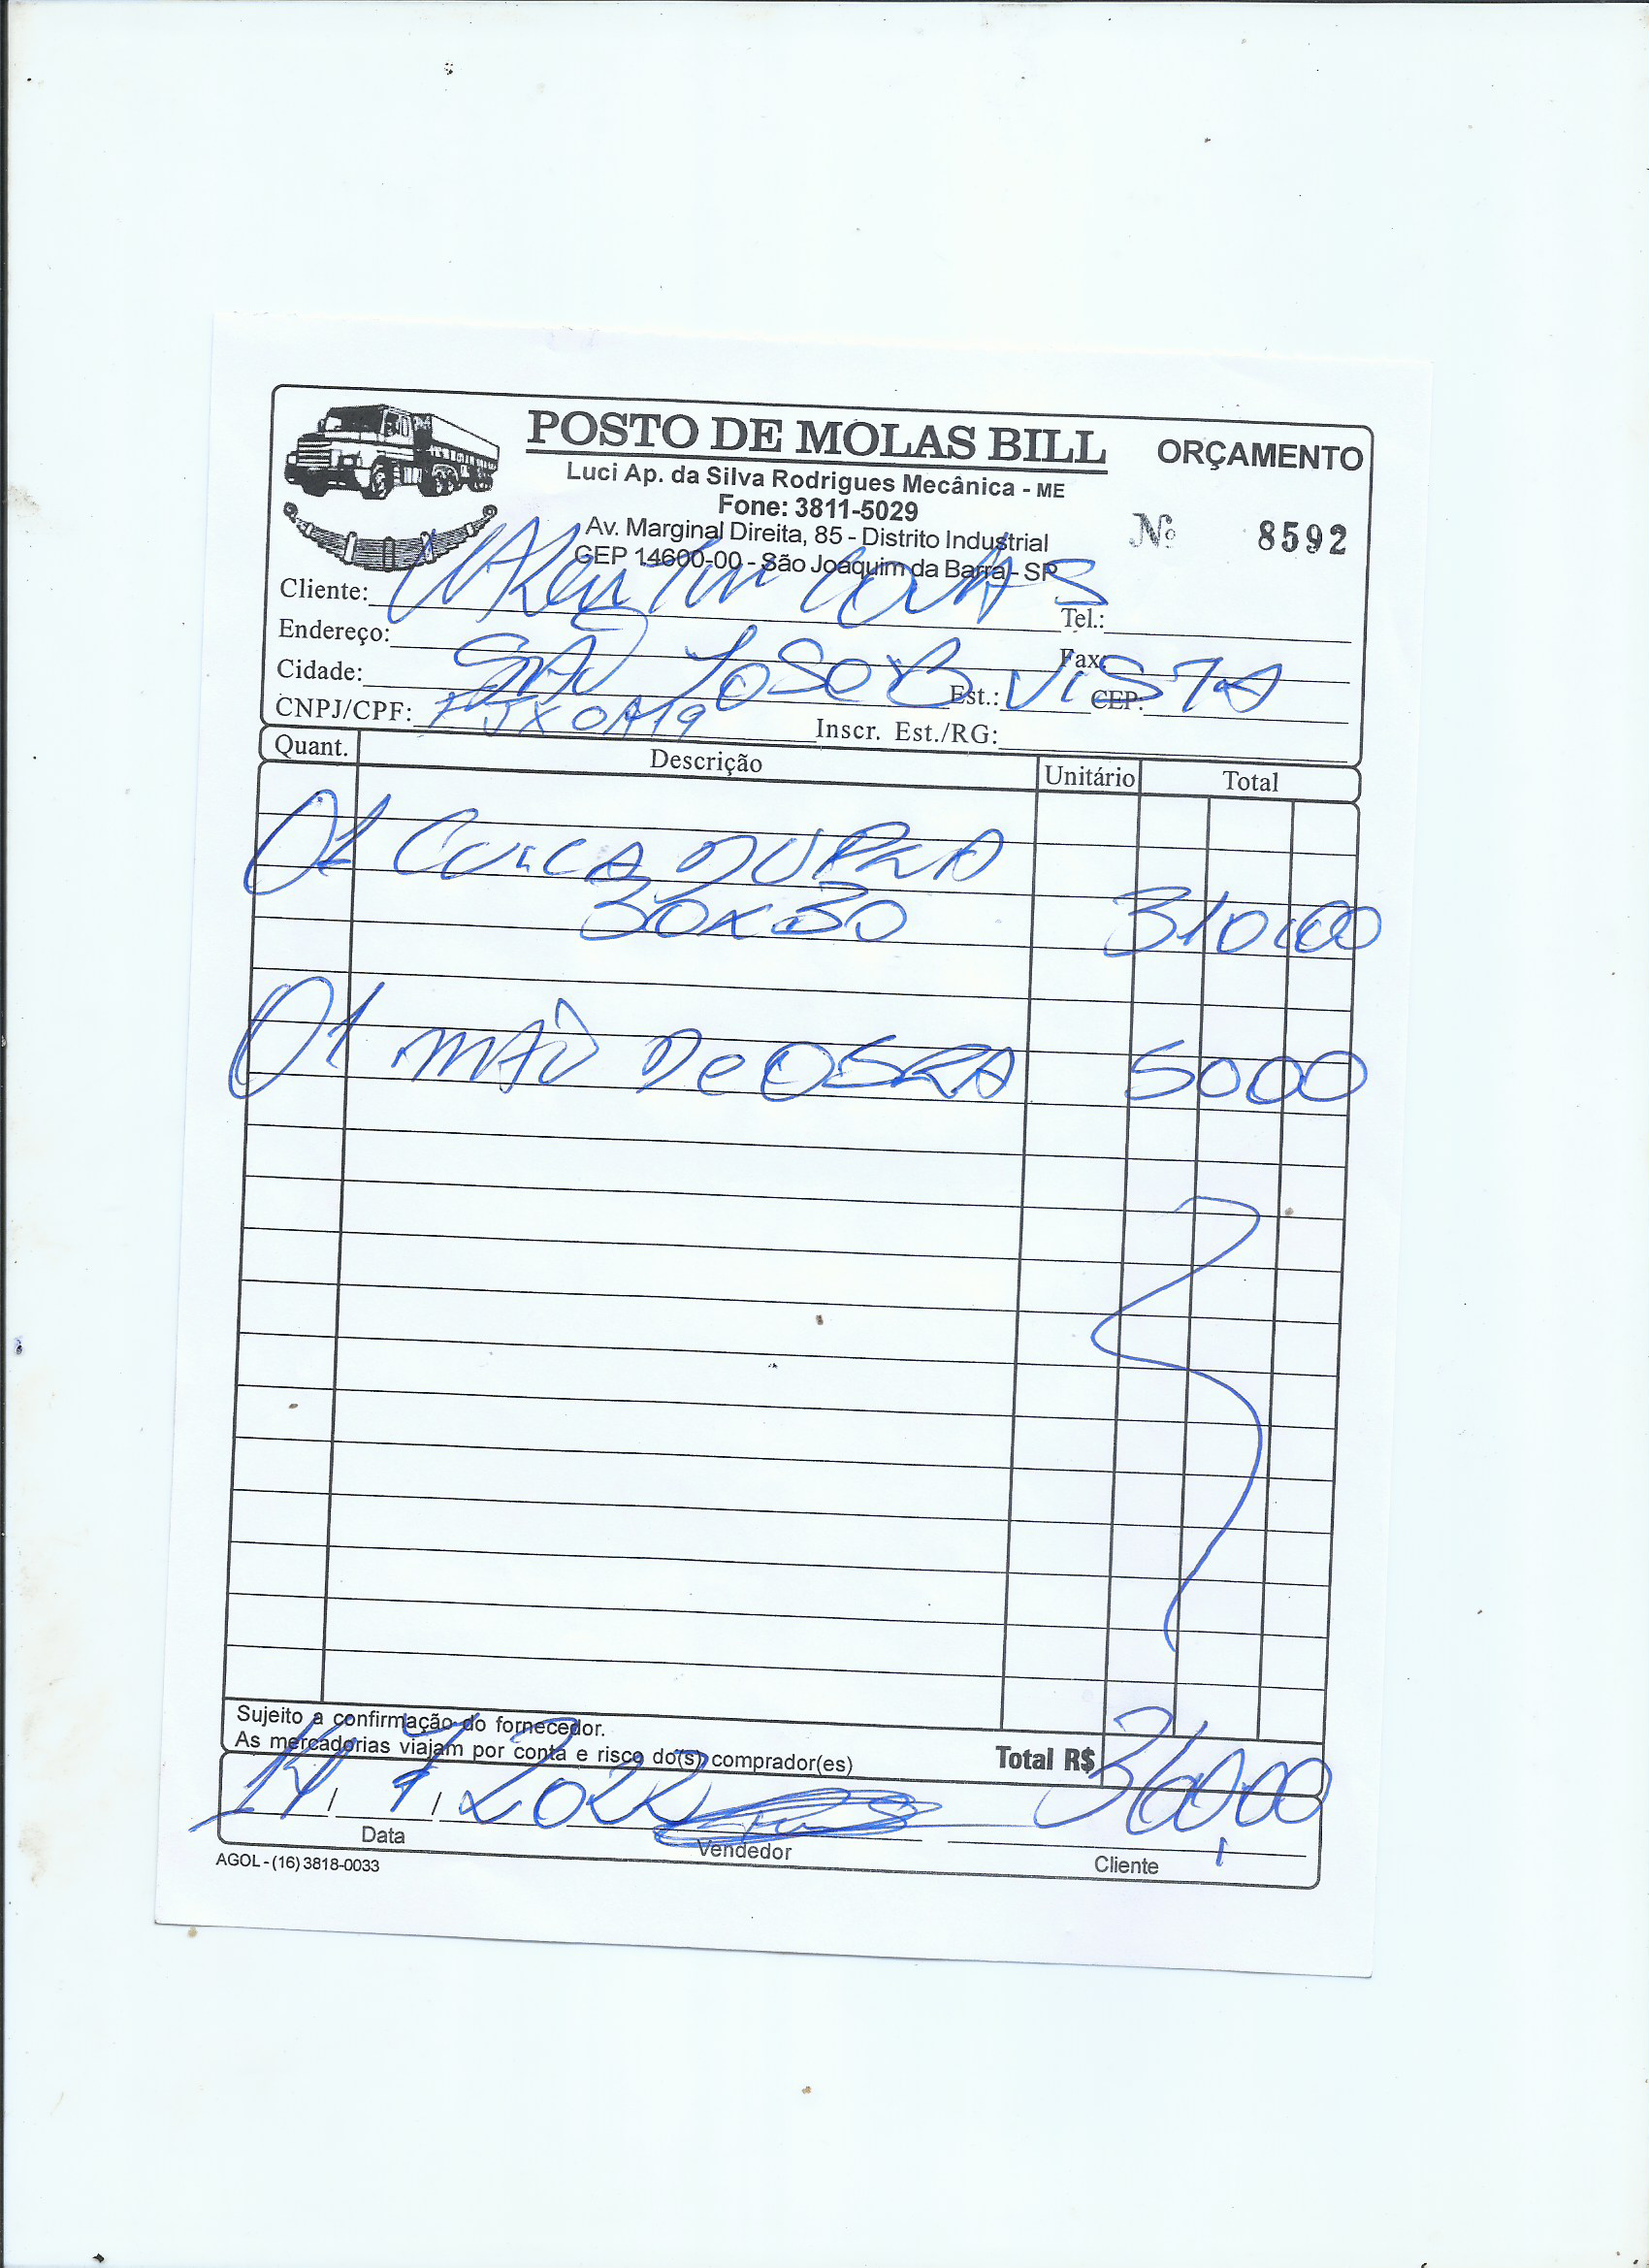 POSTO DE MOLAS BILL
ORÇAMENTO
Luci Ap. da Silva Rodrigues Mecânica - ME
Fone: 3811-5029
Av. Marginal Direita, 85 - Distrito Industrial
CEP 14600-00 - São Joaquim da Barra - SP
Nº 8592
Cliente:
Tel.:
Endereço:
Fax:
Cidade: SÃO JOSE B VISTA
Est.:
CEP:
CNPJ/CPF: FJX0A19
Inscr. Est./RG:
Quant. Descrição Unitário Total
01 CUICA DUPLA
30X30 310,00
01 MÃO De OBRA 5000
Sujeito a confirmação do fornecedor.
As mercadorias viajam por conta e risco do(s) comprador(es)
Total R$ 360,00
14 / 7 / 2022
Data
Vendedor
Cliente
AGOL - (16) 3818-0033